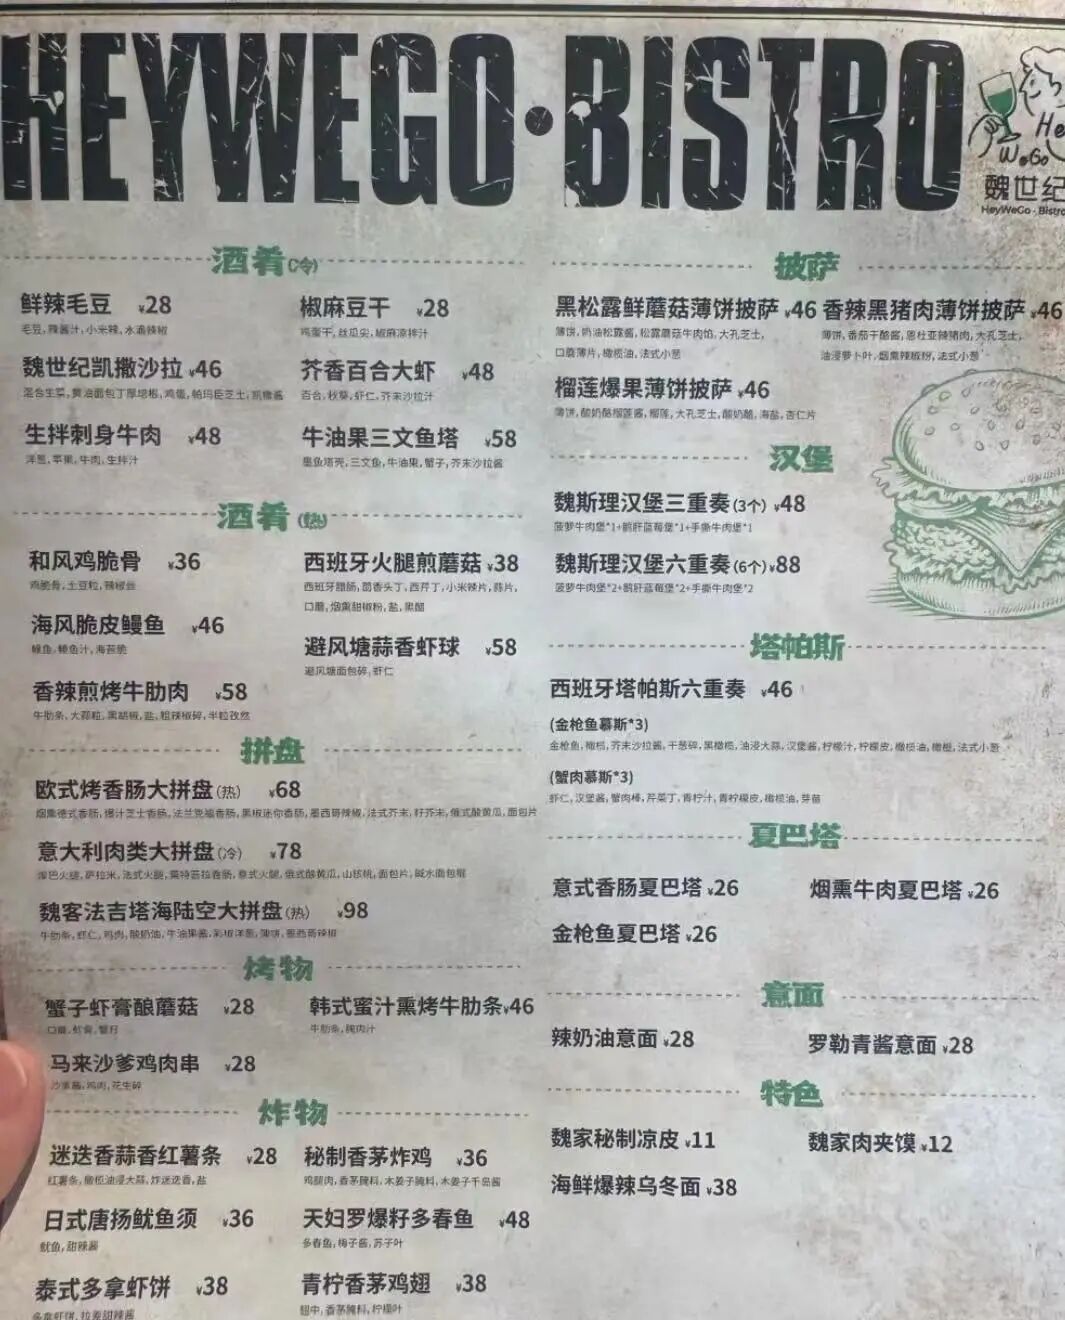 HEYWEGO·BISTRO
He
WeGo
魏世纪
HeyWeGo·Bistro
酒肴(冷)
鲜辣毛豆 ¥28
毛豆,辣酱汁,小米辣,水滴辣椒
椒麻豆干 ¥28
鸡蛋干,丝瓜尖,椒麻凉拌汁
魏世纪凯撒沙拉 ¥46
混合生菜,黄油面包丁厚培根,鸡蛋,帕玛臣芝士,凯撒酱
芥香百合大虾 ¥48
百合,秋葵,虾仁,芥末沙拉汁
生拌刺身牛肉 ¥48
洋葱,苹果,牛肉,生拌汁
牛油果三文鱼塔 ¥58
墨鱼塔壳,三文鱼,牛油果,蟹子,芥末沙拉酱
酒肴(热)
和风鸡脆骨 ¥36
鸡脆骨,土豆粒,辣椒
西班牙火腿煎蘑菇 ¥38
西班牙腊肠,茴香头丁,西芹丁,小米辣片,蒜片,
口蘑,烟熏甜椒粉,盐,黑醋
海风脆皮鳗鱼 ¥46
鳗鱼,鳗鱼汁,海苔脆
避风塘蒜香虾球 ¥58
避风塘面包碎,虾仁
香辣煎烤牛肋肉 ¥58
牛肋条,大蒜粒,黑胡椒,盐,粗辣椒碎,半粒孜然
拼盘
欧式烤香肠大拼盘(热) ¥68
烟熏德式香肠,爆汁芝士香肠,法兰克福香肠,黑椒迷你香肠,墨西哥辣椒,法式芥末,籽芥末,俄式酸黄瓜,面包片
意大利肉类大拼盘(冷) ¥78
库巴火腿,萨拉米,法式火腿,莫特苔拉香肠,意式火腿,俄式酸黄瓜,山核桃,面包片,碱水面包棍
魏客法吉塔海陆空大拼盘(热) ¥98
牛肋条,虾仁,鸡肉,酸奶油,牛油果酱,彩椒洋葱,薄饼,墨西哥辣椒
烤物
蟹子虾膏酿蘑菇 ¥28
口蘑,虾膏,蟹籽
韩式蜜汁熏烤牛肋条 ¥46
牛肋条,腌肉汁
马来沙爹鸡肉串 ¥28
沙爹酱,鸡肉,花生碎
炸物
迷迭香蒜香红薯条 ¥28
红薯条,橄榄油浸大蒜,炸迷迭香,盐
秘制香茅炸鸡 ¥36
鸡腿肉,香茅腌料,木姜子腌料,木姜子千岛酱
日式唐扬鱿鱼须 ¥36
鱿鱼,甜辣酱
天妇罗爆籽多春鱼 ¥48
多春鱼,梅子酱,苏子叶
泰式多拿虾饼 ¥38
多拿虾饼,拉差甜辣酱
青柠香茅鸡翅 ¥38
翅中,香茅腌料,柠檬叶
披萨
黑松露鲜蘑菇薄饼披萨 ¥46
薄饼,奶油松露酱,松露蘑菇牛肉馅,大孔芝士,
口蘑薄片,橄榄油,法式小葱
香辣黑猪肉薄饼披萨 ¥46
薄饼,番茄干酪酱,恩杜亚辣猪肉,大孔芝士,
油浸萝卜叶,烟熏辣椒粉,法式小葱
榴莲爆果薄饼披萨 ¥46
薄饼,酸奶酪榴莲酱,榴莲,大孔芝士,酸奶酪,海盐,杏仁片
汉堡
魏斯理汉堡三重奏(3个) ¥48
菠萝牛肉堡*1+鹅肝蓝莓堡*1+手撕牛肉堡*1
魏斯理汉堡六重奏(6个) ¥88
菠萝牛肉堡*2+鹅肝蓝莓堡*2+手撕牛肉堡*2
塔帕斯
西班牙塔帕斯六重奏 ¥46
(金枪鱼慕斯*3)
金枪鱼,橄榄,芥末沙拉酱,干葱碎,黑橄榄,油浸大蒜,汉堡酱,柠檬汁,柠檬皮,橄榄油,橄榄,法式小葱
(蟹肉慕斯*3)
虾仁,汉堡酱,蟹肉棒,芹菜丁,青柠汁,青柠檬皮,橄榄油,芽苗
夏巴塔
意式香肠夏巴塔 ¥26
烟熏牛肉夏巴塔 ¥26
金枪鱼夏巴塔 ¥26
意面
辣奶油意面 ¥28
罗勒青酱意面 ¥28
特色
魏家秘制凉皮 ¥11
魏家肉夹馍 ¥12
海鲜爆辣乌冬面 ¥38